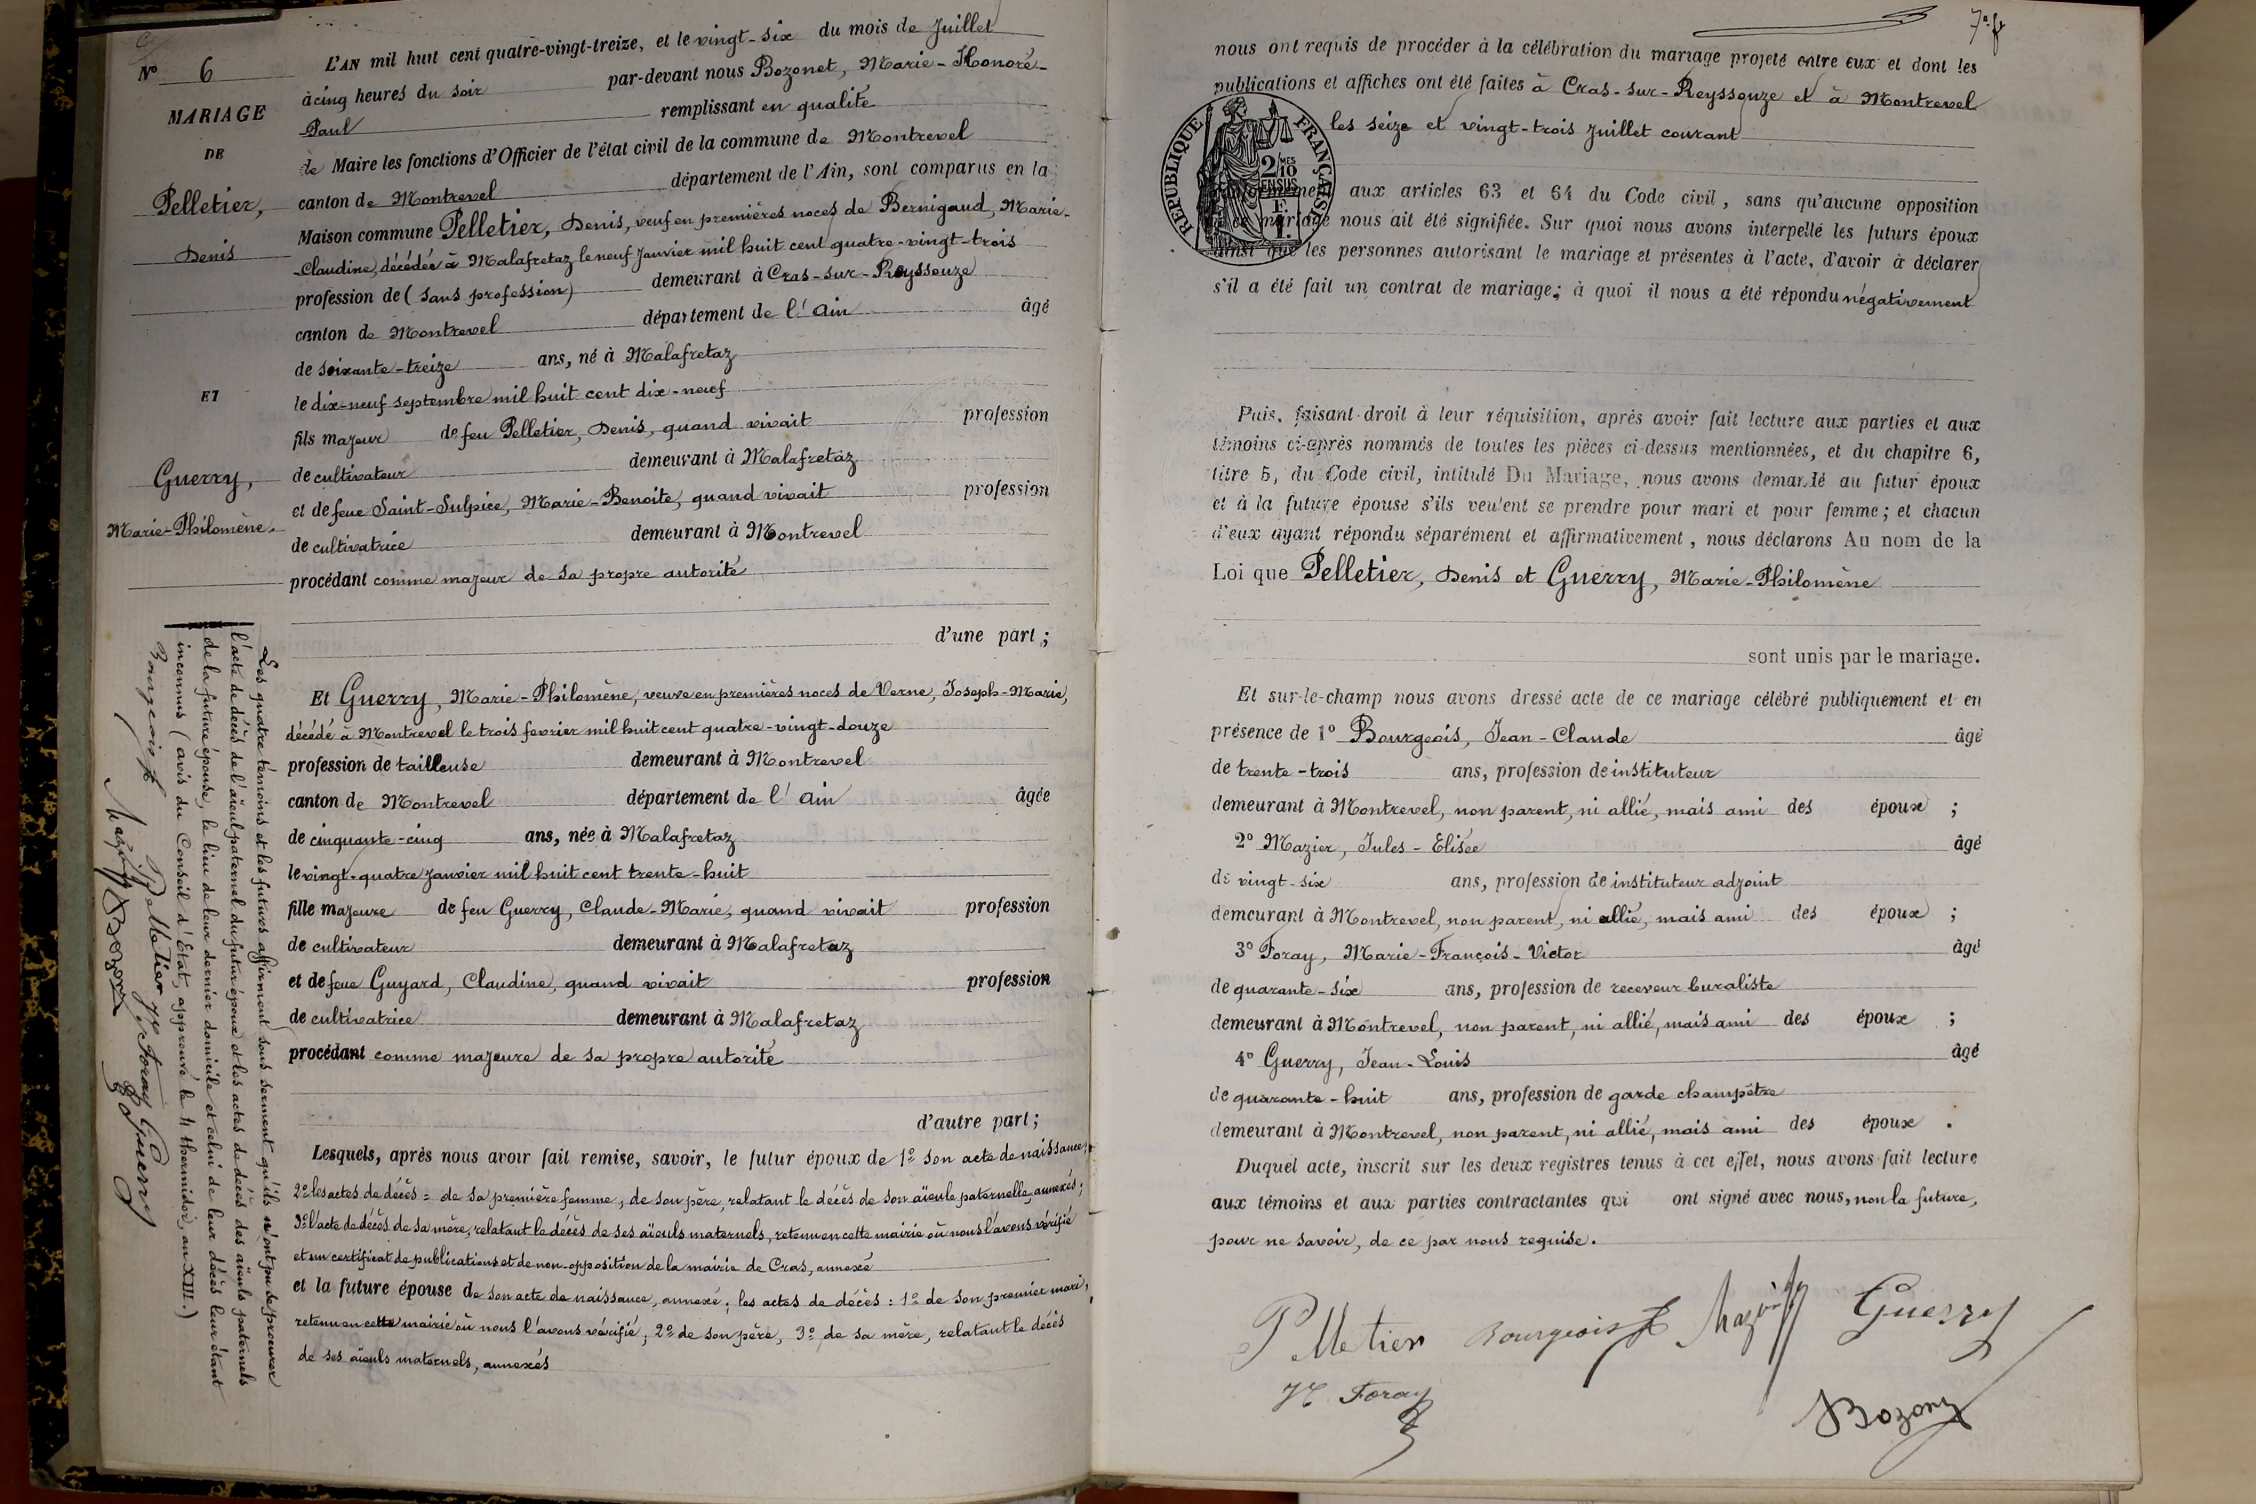 N° 6
MARIAGE
DE
Pelletier,
Denis
ET
Guerry,
Marie-Philomène.
L'AN mil huit cent quatre-vingt-treize, et le vingt-six du mois de Juillet
à cinq heures du soir par-devant nous Bozonet, Marie-Honoré-
Paul remplissant en qualité
de Maire les fonctions d'Officier de l'état civil de la commune de Montrevel
canton de Montrevel département de l'Ain, sont comparus en la
Maison commune Pelletier, Denis, veuf en premières noces de Bernigaud, Marie-
-Claudine, décédée à Malafretaz le neuf Janvier mil huit cent quatre-vingt-trois
profession de (sans profession) demeurant à Cras-sur-Reyssouze
canton de Montrevel département de l'Ain âgé
de soixante-treize ans, né à Malafretaz
le dix-neuf septembre mil huit cent dix-neuf
fils majeur de feu Pelletier, Denis, quand vivait profession
de cultivateur demeurant à Malafretaz
et de feue Saint-Sulpice, Marie-Benoite, quand vivait profession
de cultivatrice demeurant à Montrevel
procédant comme majeur de sa propre autorité
d'une part ;
Et Guerry, Marie-Philomène, veuve en premières noces de Verne, Joseph-Marie,
décédé à Montrevel le trois fevrier mil huit cent quatre-vingt-douze
profession de tailleuse demeurant à Montrevel
canton de Montrevel département de l'Ain âgée
de cinquante-cinq ans, née à Malafretaz
le vingt-quatre Janvier mil huit cent trente-huit
fille majeure de feu Guerry, Claude-Marie, quand vivait profession
de cultivateur demeurant à Malafretaz
et de feue Guyard, Claudine, quand vivait profession
de cultivatrice demeurant à Malafretaz
procédant comme majeure de sa propre autorité
d'autre part ;
Lesquels, après nous avoir fait remise, savoir, le futur époux de 1° son acte de naissance;
2° les actes de décès = de sa première femme, de son père, relatant le décès de son aïeule paternelle, annexés;
3° l'acte de décès de sa mère, relatant le décès de ses aïeuls maternels, retenu en cette mairie où nous l'avons vérifié
et un certificat de publications et de non-opposition de la mairie de Cras, annexé
et la future épouse de son acte de naissance, annexé; les actes de décès : 1° de son premier mari,
retenu en cette mairie où nous l'avons vérifié; 2° de son père, 3° de sa mère, relatant le décès
de ses aïeuls maternels, annexés
Les quatre témoins et les futurs affirment sous serment qu'ils n'ont pu se procurer
l'acte de décès de l'aïeul paternel du futur époux et les actes de décès des aïeuls paternels
de la future épouse, le lieu de leur dernier domicile et celui de leur décès leur étant
inconnus (avis du Conseil d'État, approuvé le 4 thermidor, an XIII.)
Bourgeois Pelletier Foray Guerry
Mazier Bozonet
7e f
nous ont requis de procéder à la célébration du mariage projeté entre eux et dont les
publications et affiches ont été faites à Cras-sur-Reyssouze et à Montrevel
les seize et vingt-trois Juillet courant
REPUBLIQUE FRANÇAISE
2/MES 10
EN SUS
conformément aux articles 63 et 64 du Code civil, sans qu'aucune opposition
à ce mariage nous ait été signifiée. Sur quoi nous avons interpellé les futurs époux
ainsi que les personnes autorisant le mariage et présentes à l'acte, d'avoir à déclarer
s'il a été fait un contrat de mariage; à quoi il nous a été répondu négativement
Puis, faisant droit à leur réquisition, après avoir fait lecture aux parties et aux
témoins ci-après nommés de toutes les pièces ci-dessus mentionnées, et du chapitre 6,
titre 5, du Code civil, intitulé Du Mariage, nous avons demandé au futur époux
et à la future épouse s'ils veulent se prendre pour mari et pour femme; et chacun
d'eux ayant répondu séparément et affirmativement, nous déclarons Au nom de la
Loi que Pelletier, Denis et Guerry, Marie-Philomène
sont unis par le mariage.
Et sur-le-champ nous avons dressé acte de ce mariage célébré publiquement et en
présence de 1° Bourgeois, Jean-Claude âgé
de trente-trois ans, profession de instituteur
demeurant à Montrevel, non parent, ni allié, mais ami des époux ;
2° Mazier, Jules-Elisée âgé
de vingt-six ans, profession de instituteur adjoint
demeurant à Montrevel, non parent, ni allié, mais ami des époux ;
3° Foray, Marie-François-Victor âgé
de quarante-six ans, profession de receveur buraliste
demeurant à Montrevel, non parent, ni allié, mais ami des époux ;
4° Guerry, Jean-Louis âgé
de quarante-huit ans, profession de garde champêtre
demeurant à Montrevel, non parent, ni allié, mais ami des époux .
Duquel acte, inscrit sur les deux registres tenus à cet effet, nous avons fait lecture
aux témoins et aux parties contractantes qui ont signé avec nous, non la future,
pour ne savoir, de ce par nous requise.
Pelletier Bourgeois Mazier Guerry
Foray
Bozonet